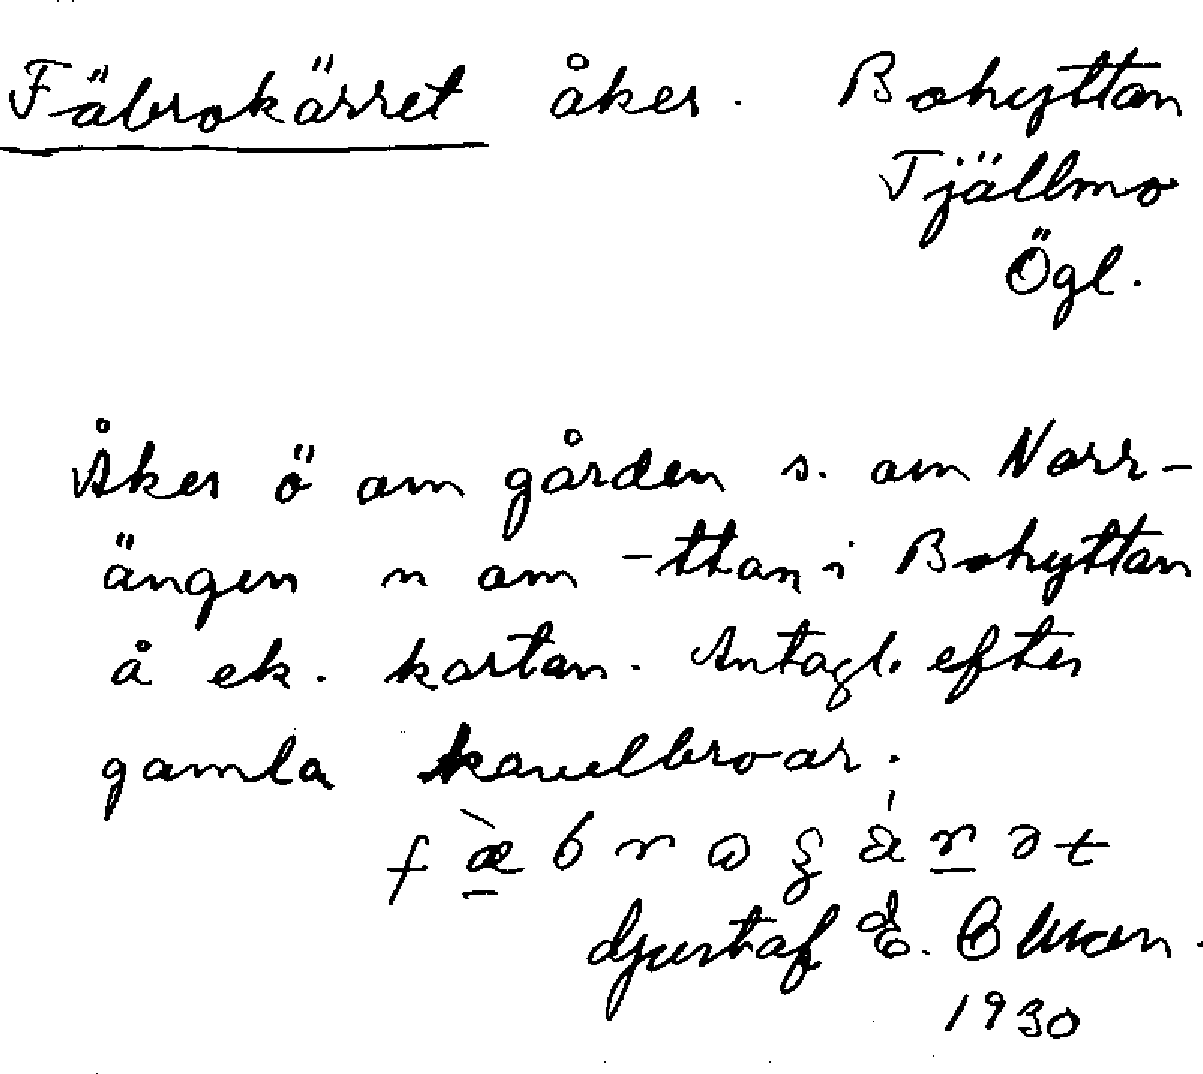 Fäbrokärret åker. Bohyttan
Tjällmo
Ögl.
Åker ö om gården s. om Norr-
ängen n om -ttan i Bohyttan
å ek. kartan. Antagl. efter
gamla kavelbroar.
Gustaf E.
1930